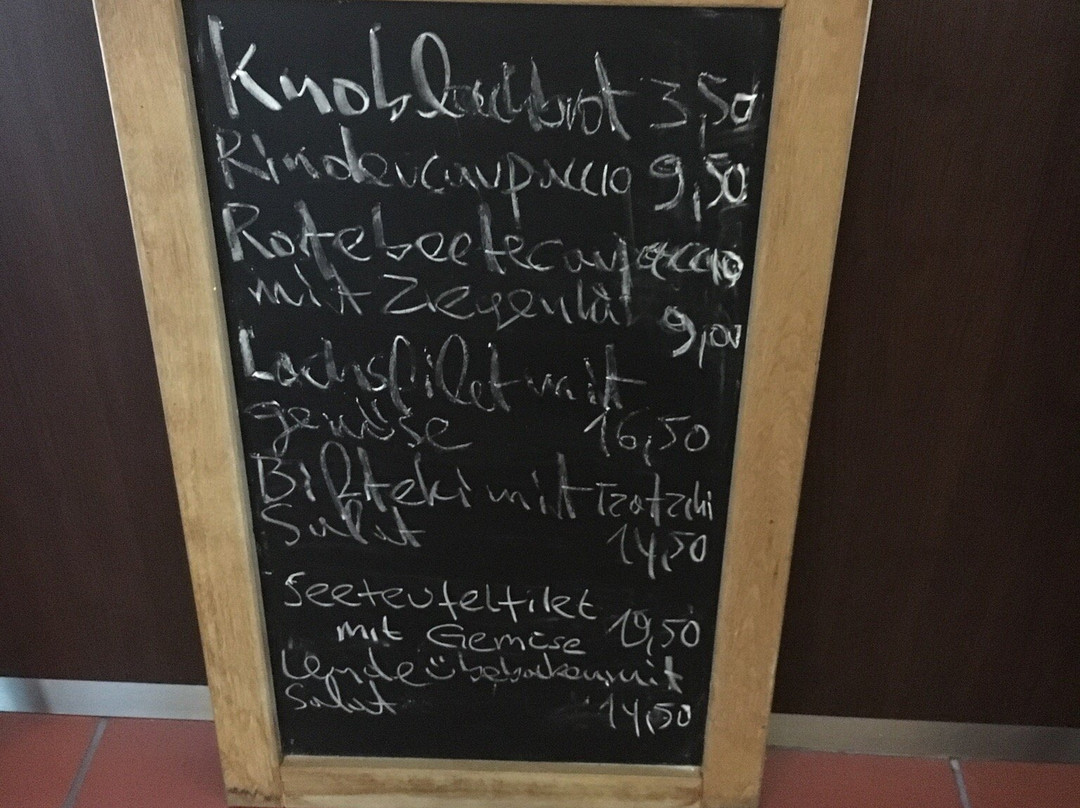 Knoblauchbrot 3,50
Rindercarpaccio 9,50
Rotebeetecarpaccio
mit Ziegenkäs
9,00
Lachsfilet mit
gemüse 16,50
Bifteki mit Tzatziki
Salat 14,50
Seeteufelfilet
mit Gemüse 19,50
Lende übebacken mit
Salat 14,50